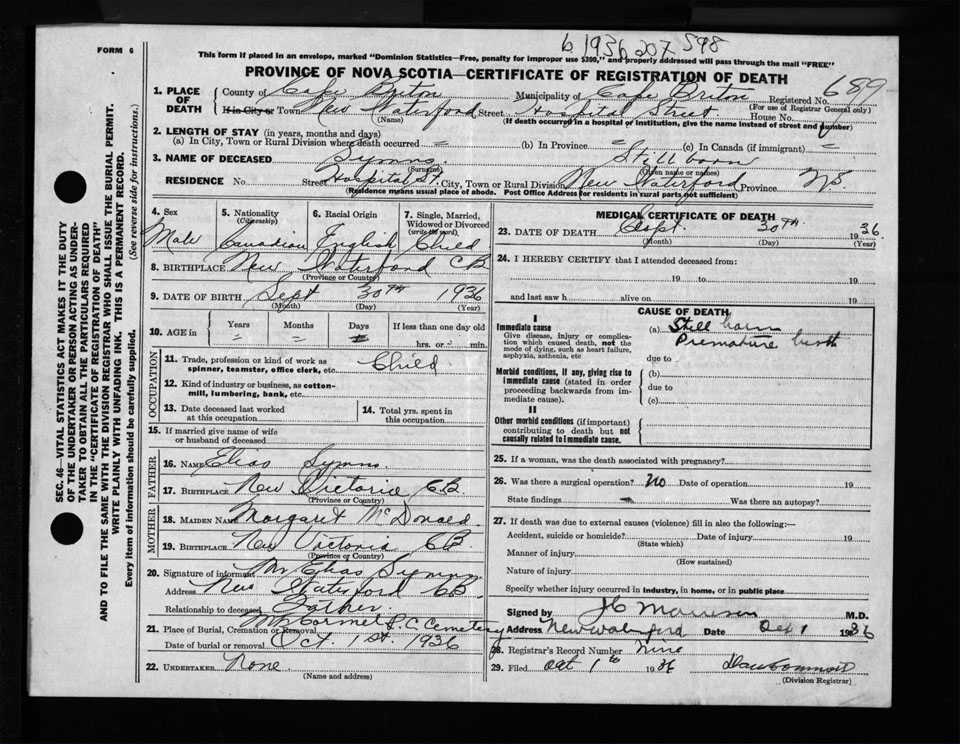 FORM 6
6 1936 207 598
This form if placed in an envelope, marked "Dominion Statistics—Free, penalty for improper use $300," and properly addressed will pass through the mail "FREE"
PROVINCE OF NOVA SCOTIA—CERTIFICATE OF REGISTRATION OF DEATH
1. PLACE OF DEATH County of Cape Briton Municipality of Cape Briton Registered No. 689
(For use of Registrar General only)
If in City or Town New Waterford Street Hospital Street House No.
(Name) (If death occurred in a hospital or institution, give the name instead of street and number)
2. LENGTH OF STAY (in years, months and days)
(a) In City, Town or Rural Division where death occurred = (b) In Province = (c) In Canada (if immigrant) =
3. NAME OF DECEASED Symns Stillborn
(Surname) (Given name or names)
RESIDENCE No. Street Hospital St. City, Town or Rural Division New Waterford Province N.S.
(Residence means usual place of abode. Post Office Address for residents in rural parts not sufficient)
4. Sex 5. Nationality (Citizenship) 6. Racial Origin 7. Single, Married, Widowed or Divorced (write the word)
Male Canadian English Child
8. BIRTHPLACE New Waterford CB
(Province or Country)
9. DATE OF BIRTH Sept 30TH 1936
(Month) (Day) (Year)
10. AGE in Years Months Days If less than one day old
= = = hrs. or min.
OCCUPATION
11. Trade, profession or kind of work as spinner, teamster, office clerk, etc. Child
12. Kind of industry or business, as cotton-mill, lumbering, bank, etc.
13. Date deceased last worked at this occupation 14. Total yrs. spent in this occupation
15. If married give name of wife or husband of deceased
FATHER
16. NAME Elias Symns
17. BIRTHPLACE New Victoria C.B.
(Province or Country)
MOTHER
18. MAIDEN NAME Margaret McDonald
19. BIRTHPLACE New Victoria CB
(Province or Country)
20. Signature of informant Mr Elias Symns
Address New Waterford CB
Relationship to deceased Father
21. Place of Burial, Cremation or Removal R.C. Cemetery
Date of burial or removal Oct. 1st. 1936
22. UNDERTAKER None
(Name and address)
MEDICAL CERTIFICATE OF DEATH
23. DATE OF DEATH Sept. 30TH 1936
(Month) (Day) (Year)
24. I HEREBY CERTIFY that I attended deceased from:
19 to 19
and last saw h alive on 19
CAUSE OF DEATH
I
Immediate cause (a) Still born
Give disease, injury or complication which caused death, not the mode of dying, such as heart failure, asphyxia, asthenia, etc Premature birth
due to
Morbid conditions, if any, giving rise to immediate cause (stated in order proceeding backwards from immediate cause). (b)
due to
(c)
II
Other morbid conditions (if important) contributing to death but not causally related to immediate cause.
25. If a woman, was the death associated with pregnancy?
26. Was there a surgical operation? No Date of operation 19
State findings Was there an autopsy?
27. If death was due to external causes (violence) fill in also the following:—
Accident, suicide or homicide? Date of injury 19
(State which)
Manner of injury
(How sustained)
Nature of injury
Specify whether injury occurred in industry, in home, or in public place
Signed by M.D.
Address New Waterford Date Oct 1 1936
28. Registrar's Record Number Nine
29. Filed Oct 1st 1936
(Division Registrar)
SEC. 46—VITAL STATISTICS ACT MAKES IT THE DUTY
OF THE UNDERTAKER OR PERSON ACTING AS UNDER-
TAKER TO OBTAIN ALL THE PARTICULARS REQUIRED
IN THE "CERTIFICATE OF REGISTRATION OF DEATH"
AND TO FILE THE SAME WITH THE DIVISION REGISTRAR WHO SHALL ISSUE THE BURIAL PERMIT.
WRITE PLAINLY WITH UNFADING INK. THIS IS A PERMANENT RECORD.
Every item of information should be carefully supplied. (See reverse side for instructions.)